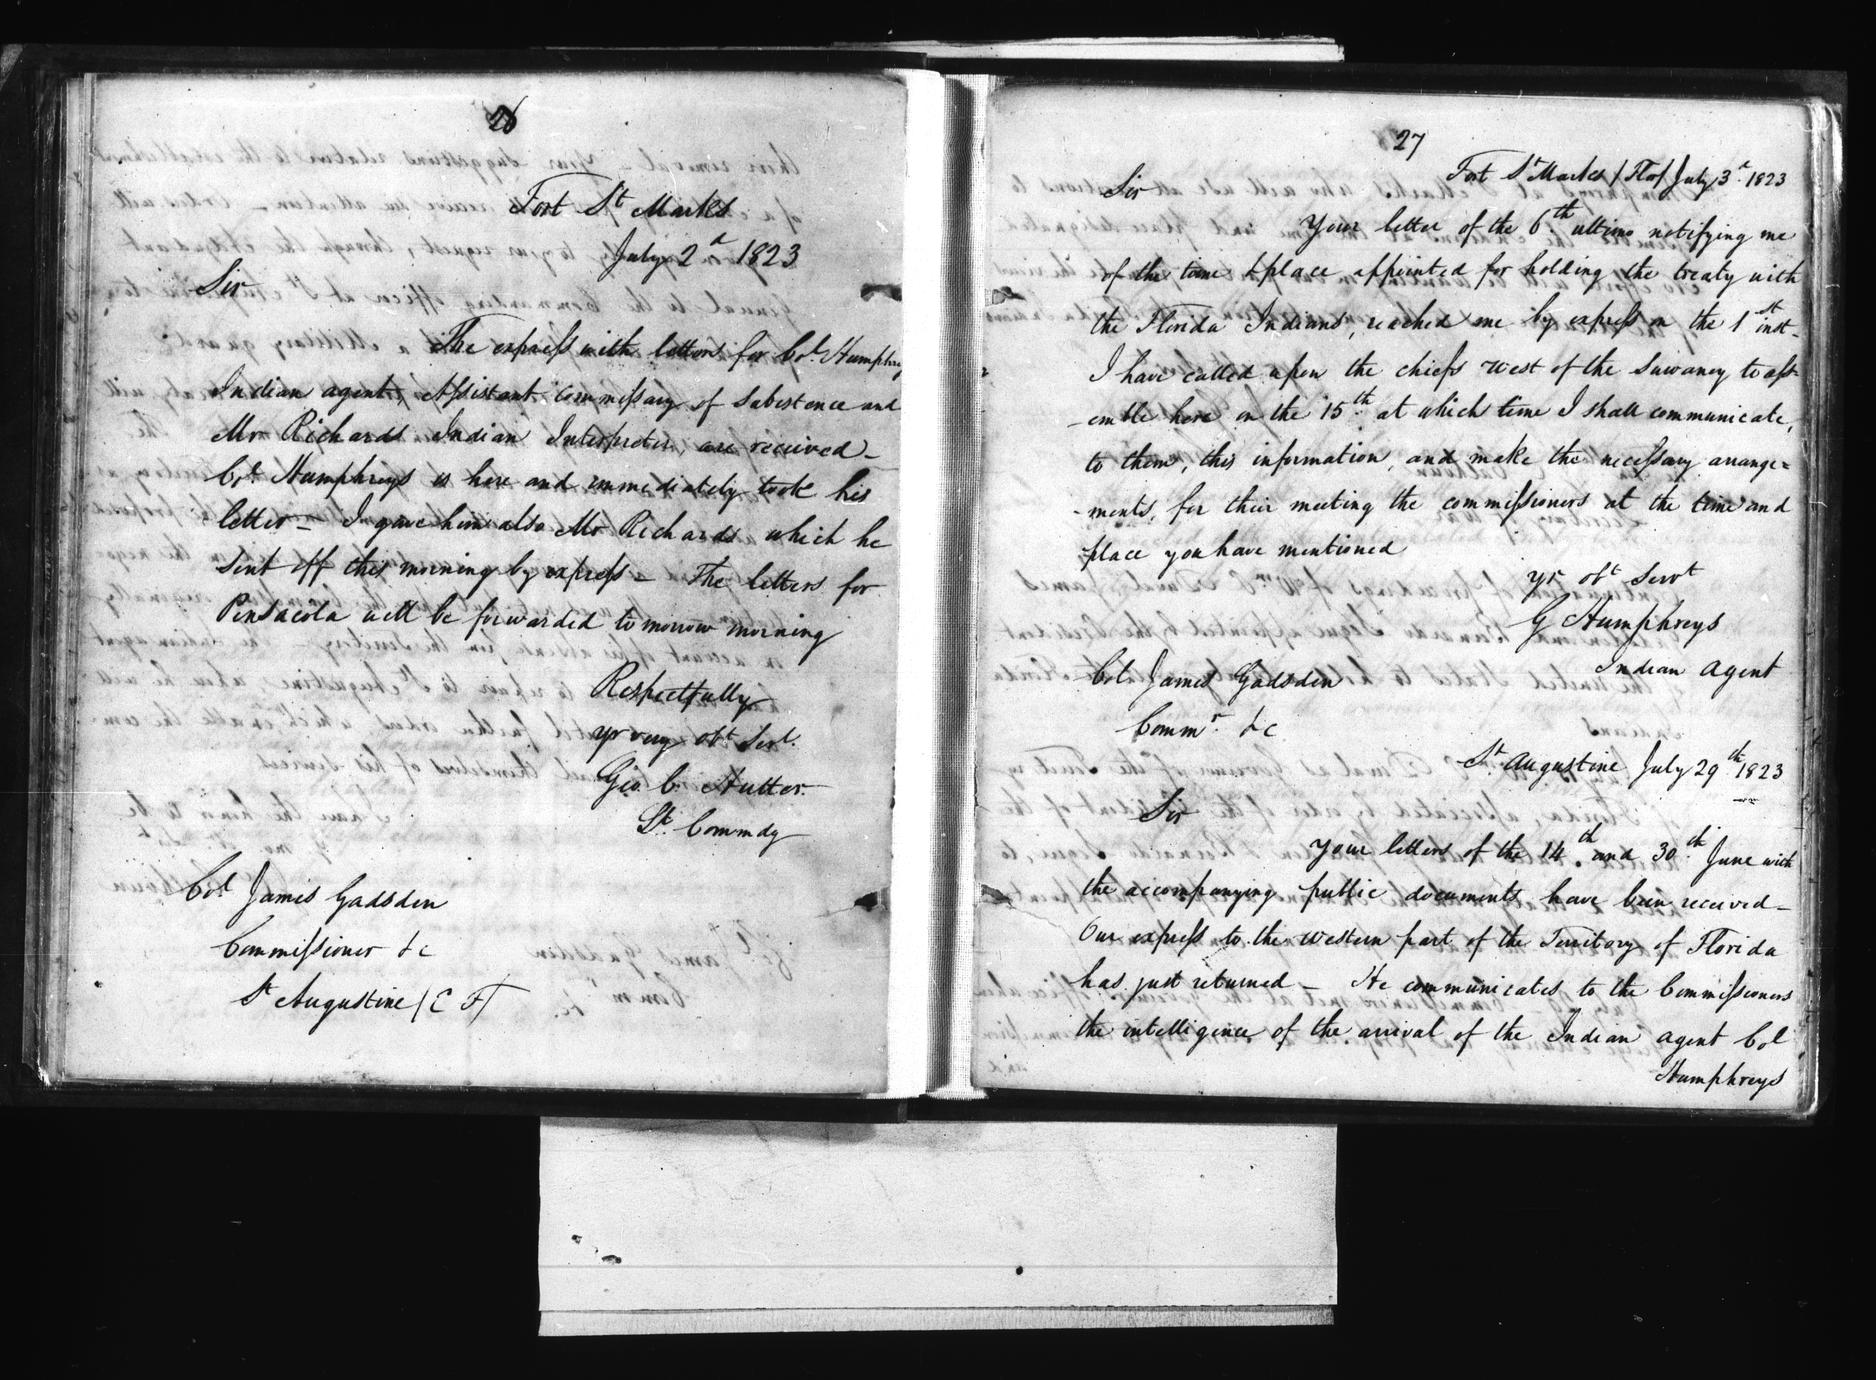 26
Fort St Marks
July 2d 1823
Sir
The express with letters for Col. Humphrey
Indian agent, Assistant Commissary of Subistence and
Mr Richards Indian Interpreter, are received _
Col Humphreys is here and immediately took his
letter _ I gave him also Mr Richards which he
sent off this morning by express _ The letters for
Pensacola will be forwarded tomorrow morning
Respectfully
yr very obt Servt.
Geo. C. Hutter
Lt. Commdg
Col James Gadsden
Commissioner &c
St Augustine / E F /
27
Fort St Marks / Flo / July 3d. 1823
Sir
Your letter of the 6th. ultimo notifying me
of the time & place appointed for holding the treaty with
the Florida Indians, reached me by express on the 1st inst-
I have called upon the chiefs west of the Suwaney to ass-
-emble here on the 15th. at which time I shall communicate,
to them, this information, and make the necessary arrange=
-ments, for their meeting the commissioners at the time and
place you have mentioned
yr obt Servt
G Humphreys
Indian agent
Col James Gadsden
Commr. &c
St. Augustine July 29th 1823
Sir
Your letters of the 14th. and 30th. June with
the accompanying public documents have been received _
Our express to the western part of the Territory of Florida
has just returned _ He communicates to the Commissioners
the intelligence of the arrival of the Indian agent Col
Humphreys